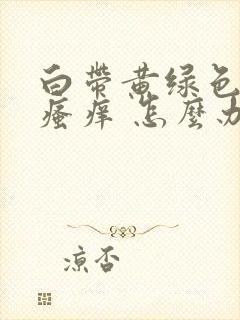 白带黄绿色
瘙痒 怎麼办
凉否